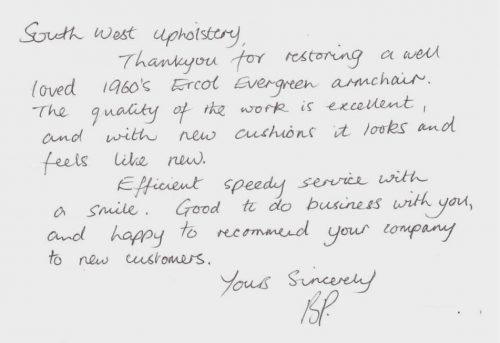 South West Upholstery,
Thankyou for restoring a well
loved 1960's Ercol Evergreen armchair.
The quality of the work is excellent,
and with new cushions it looks and
feels like new.
Efficient speedy service with
a smile. Good to do business with you,
and happy to recommend your company
to new customers.
Yours Sincerely
BP.